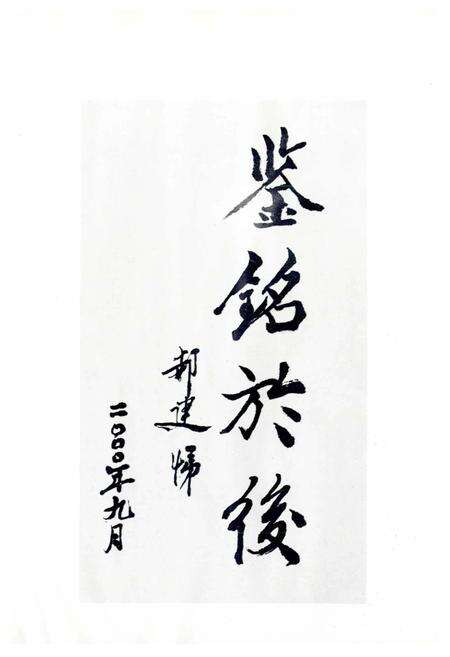 鉴铭於後
郝建
二〇〇〇年九月